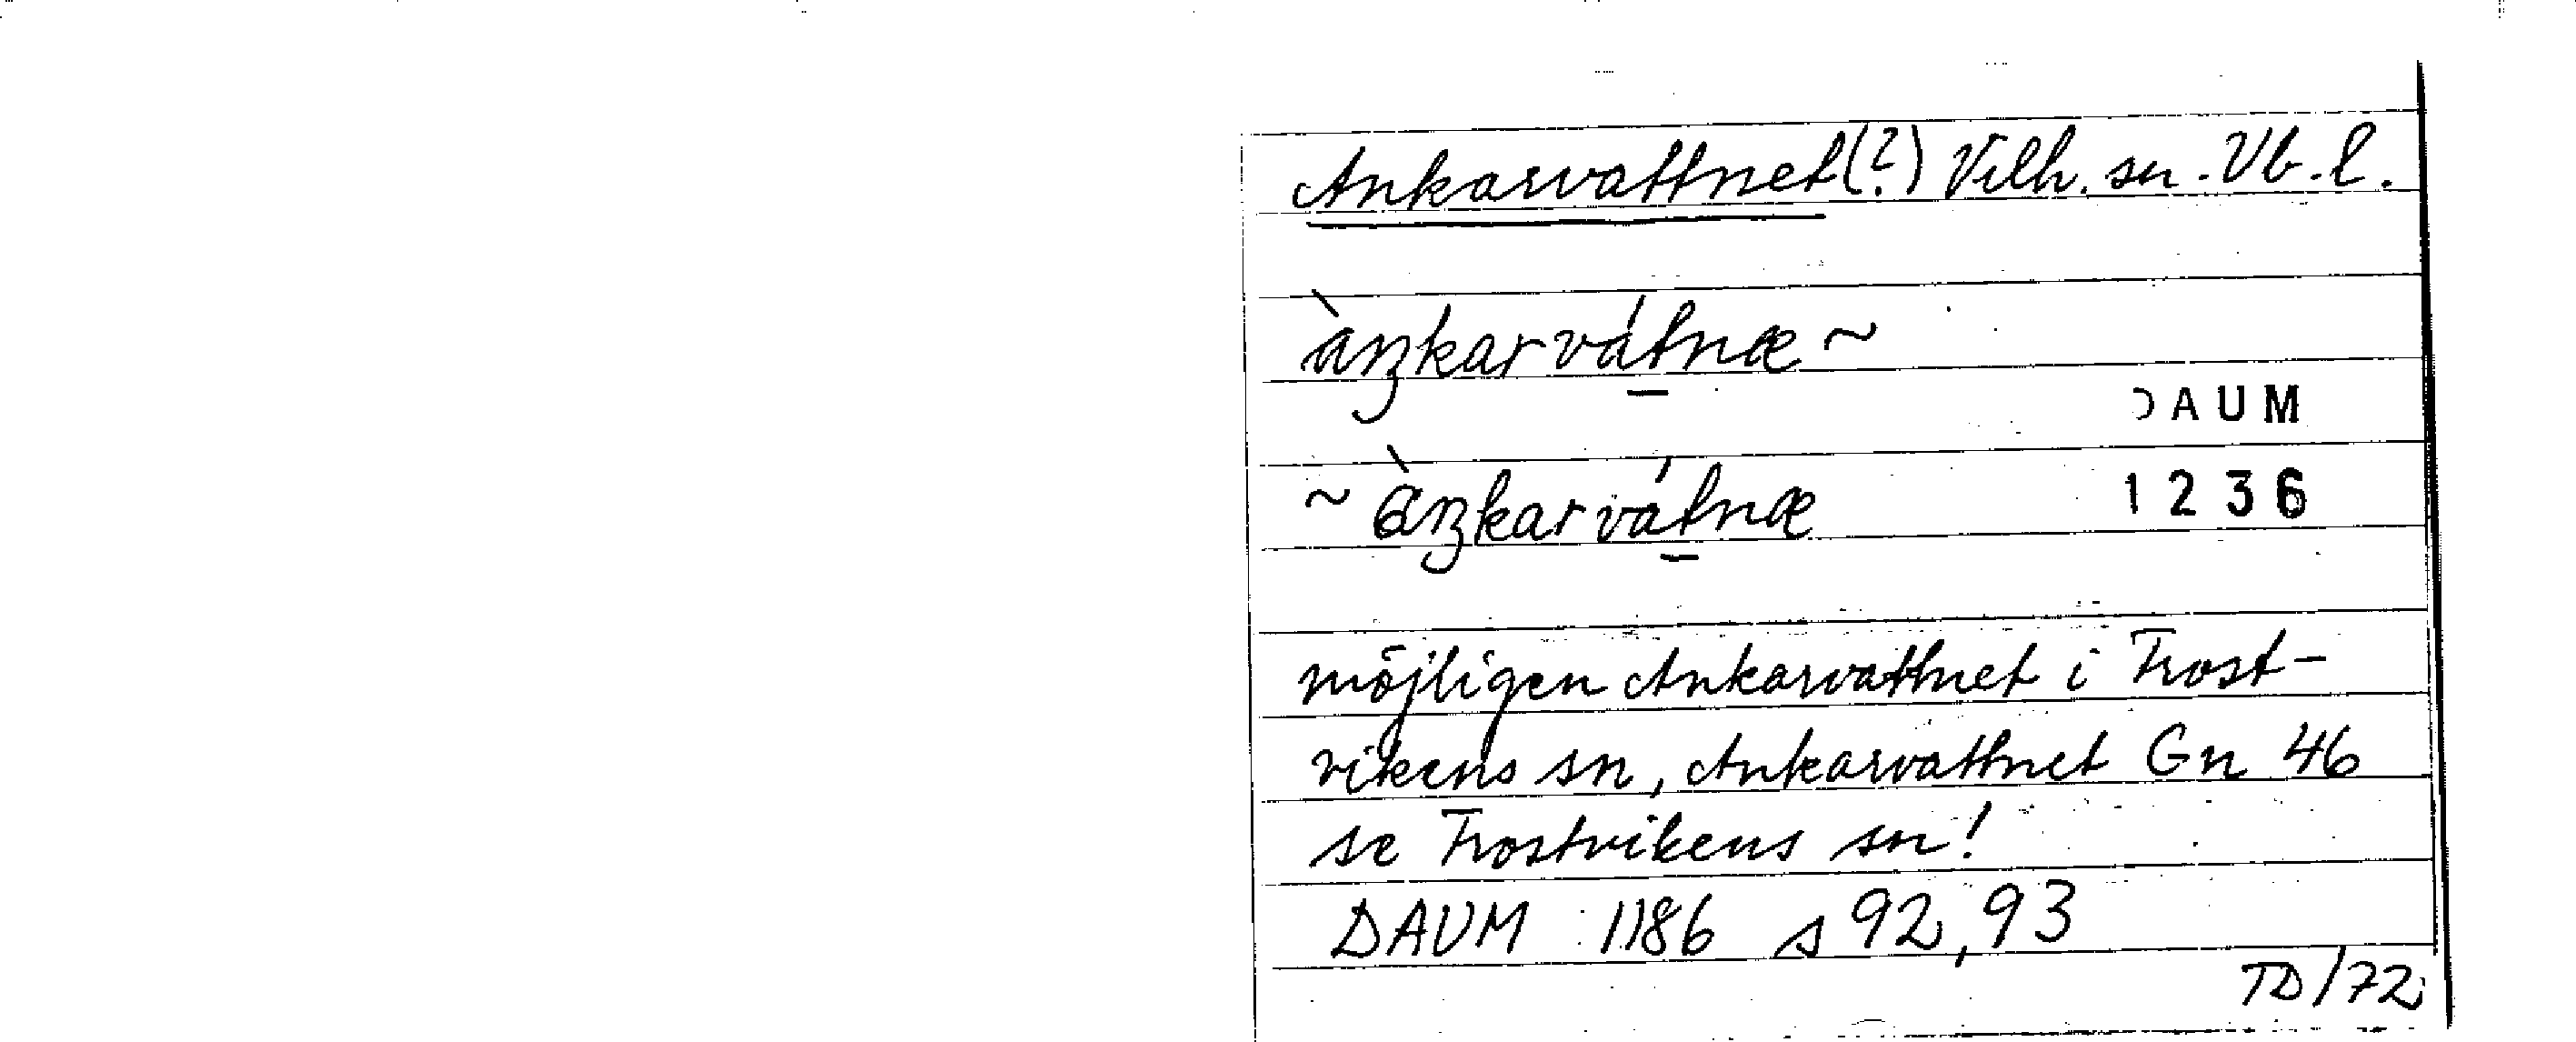 Ankarvattnet(?) Vilh. sn. Vb. l.
àŋkarvát̲næ ~
DAUM
~ àŋkarvát̲næ
1236
möjligen Ankarvattnet i Frost-
vikens sn, Ankarvattnet Gn 46
se Frostvikens sn!
DAUM 1186 s 92, 93
TD/72